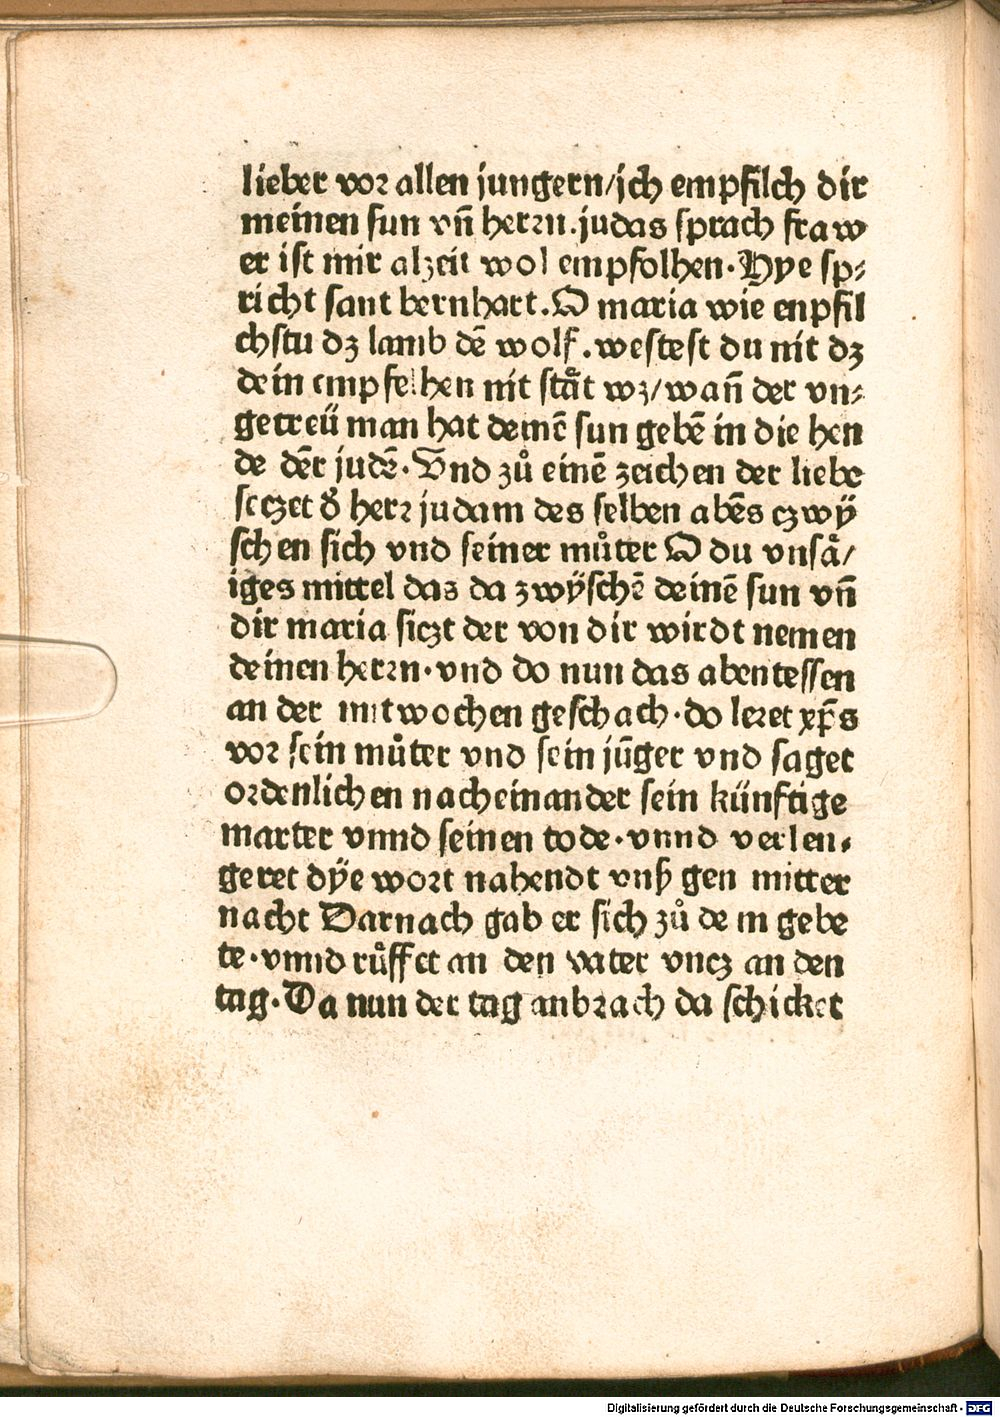 lieber vor allen jungern/ich empfilch dir
meinen sun vñ herrn.judas sprach fraw
er ist mir alzeit wol empfolhen.Hye sp⸗
richt sant bernhart.O maria wie enpfil
chstu dz lamb dē wolf.westest du nit dz
dein empfelhen nit stǎt wz/wañ der vn⸗
getreü man hat demē sun gebē in die hen
de dēr judē.Vnd zů einē zeichen der liebe
seczet d̕ herr judam des selben abēs czwÿ
schen sich vnd seiner můter O du vnsǎ/
iges mittel das da zwÿschē deinē sun vñ
dir maria siczt der von dir wirdt nemen
deinen herrn.vnd do nun das abentessen
an der mitwochen geschach.do leret xp̄s
vor sein můter vnd sein jūger vnd saget
ordenlichen nacheinander sein künftige
marter vnnd seinen tode.vnnd verlen⸗
geret dÿe wort nahendt vnß gen mitter
nacht Darnach gab er sich zů dem gebe
te.vnnd růffet an den vater vncz an den
tag.Da nun der tag anbrach da schicket
Digitalisierung gefördert durch die Deutsche Forschungsgemeinschaft - DFG